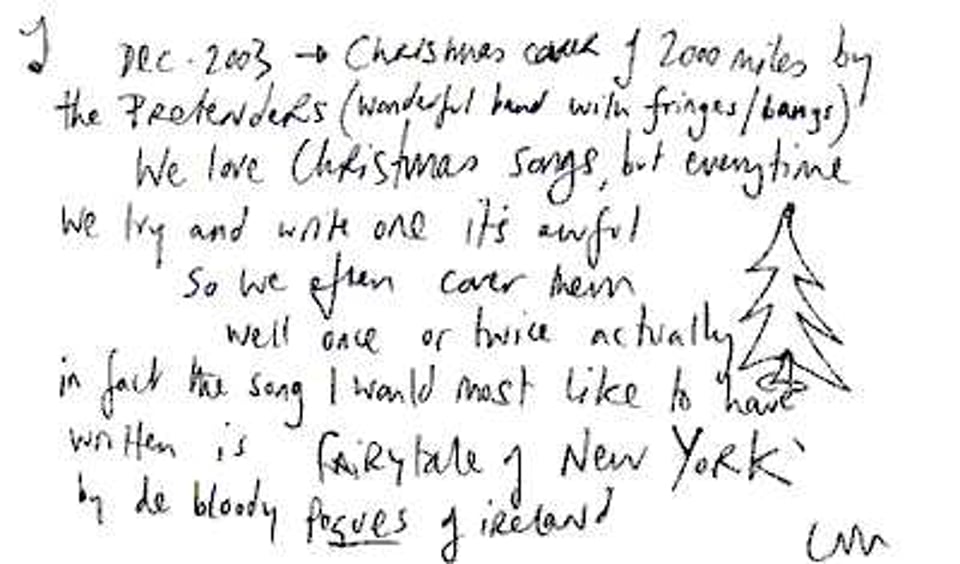 J Dec. 2003 → Christmas cover of 2000 miles by
the Pretenders (wonderful band with fringes/bangs)
We love Christmas songs, but everytime
we try and write one it's awful
So we often cover them
well once or twice actually
in fact the song I would most like to have
written is fairytale of New York
by de bloody Pogues of ireland